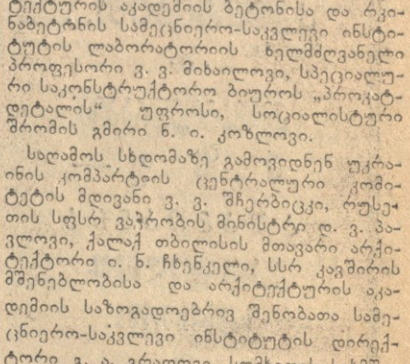 ტექტურის აკადემიის ბეტონისა და რკი-
ნაბეტონის სამეცნიერო-საკვლევი ინსტი-
ტუტის ლაბორატორიის ხელმძღვანელი
პროფესორი ვ. ვ. მიხაილოვი, სპეციალუ-
რი საკონსტრუქტორო ბიუროს „პროკატ-
დეტალის“ უფროსი, სოციალისტური
შრომის გმირი ნ. ი. კოზლოვი.
საღამოს სხდომაზე გამოვიდნენ უკრა-
ინის კომპარტიის ცენტრალური კომი-
ტეტის მდივანი ვ. ვ. შჩერბიცკი, რუსე-
თის სფსრ ვაჭრობის მინისტრი დ. ვ. პა-
ვლოვი, ქალაქ თბილისის მთავარი არქი-
ტექტორი ი. ნ. ჩხენკელი, სსრ კავშირის
მშენებლობისა და არქიტექტურის აკა-
დემიის საზოგადოებრივ შენობათა სამე-
ცნიერო-საკვლევი ინსტიტუტის დირექ-
ტორი გ. ა.